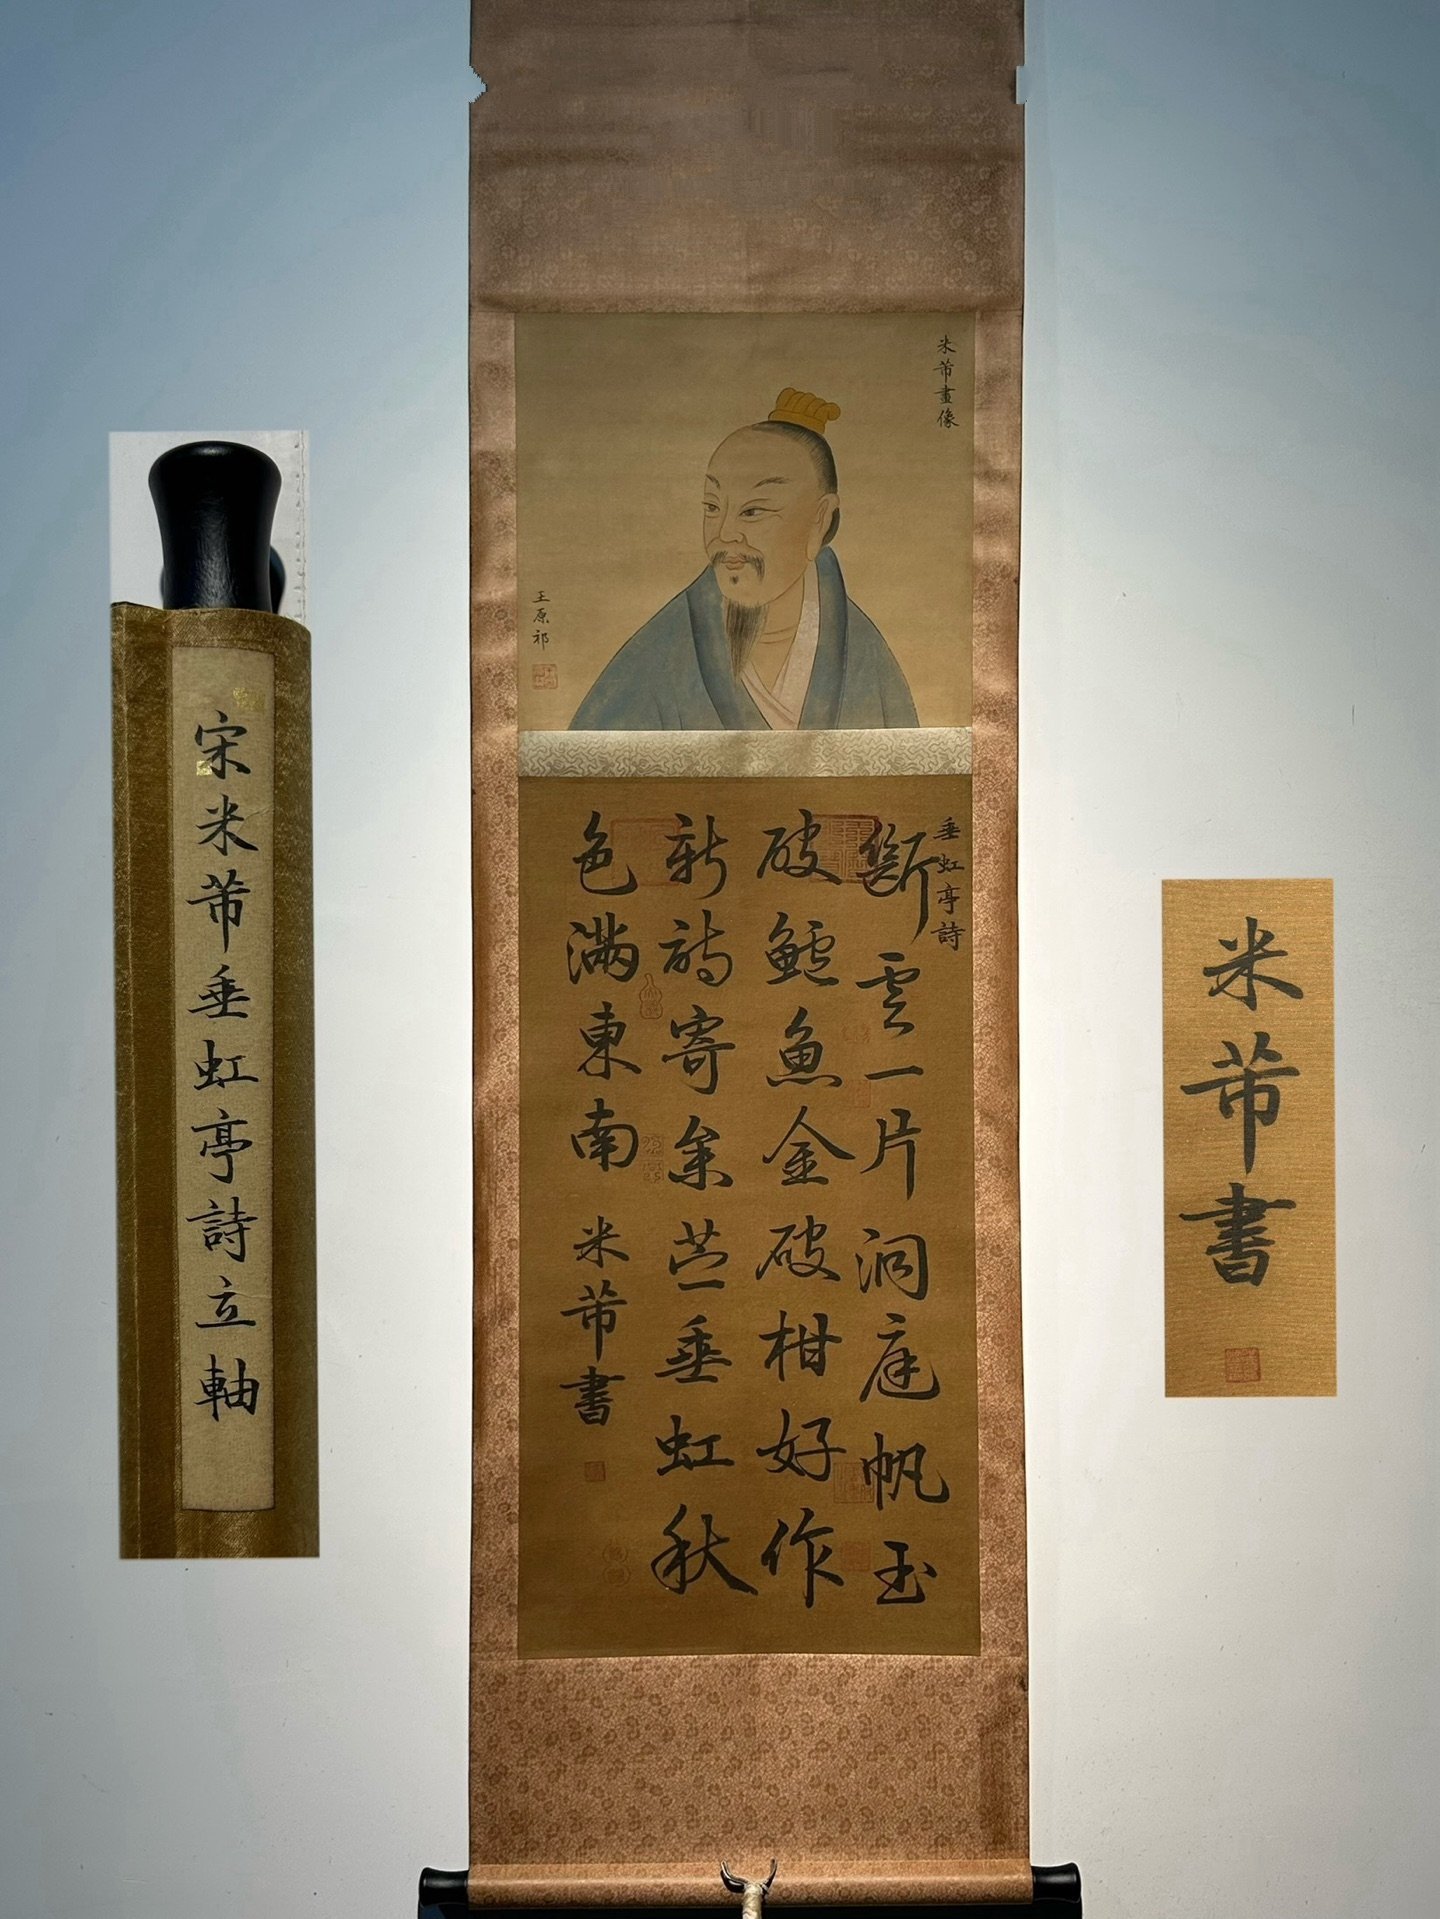 宋米芾垂虹亭詩立軸
米芾畫像
王原祁
垂虹亭詩
斷雲一片洞庭帆玉
破鱸魚金破柑好作
新詩寄桑苎垂虹秋
色滿東南
米芾書
米芾書